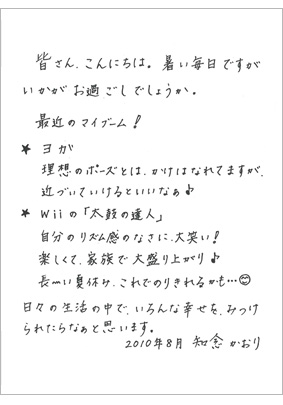 皆さん、こんにちは。暑い毎日ですが
いかがお過ごしでしょうか。
最近のマイブーム！
★ ヨガ
理想のポーズとは、かけはなれてますが、
近づいていけるといいなぁ♪
★ Wiiの「太鼓の達人」
自分のリズム感のなさに、大笑い！
楽しくて、家族で大盛り上がり♪
長〜い夏休み、これでのりきれるかも…😊
日々の生活の中で、いろんな幸せを、みつけ
られたらなぁと思います。
2010年8月 知念 かおり